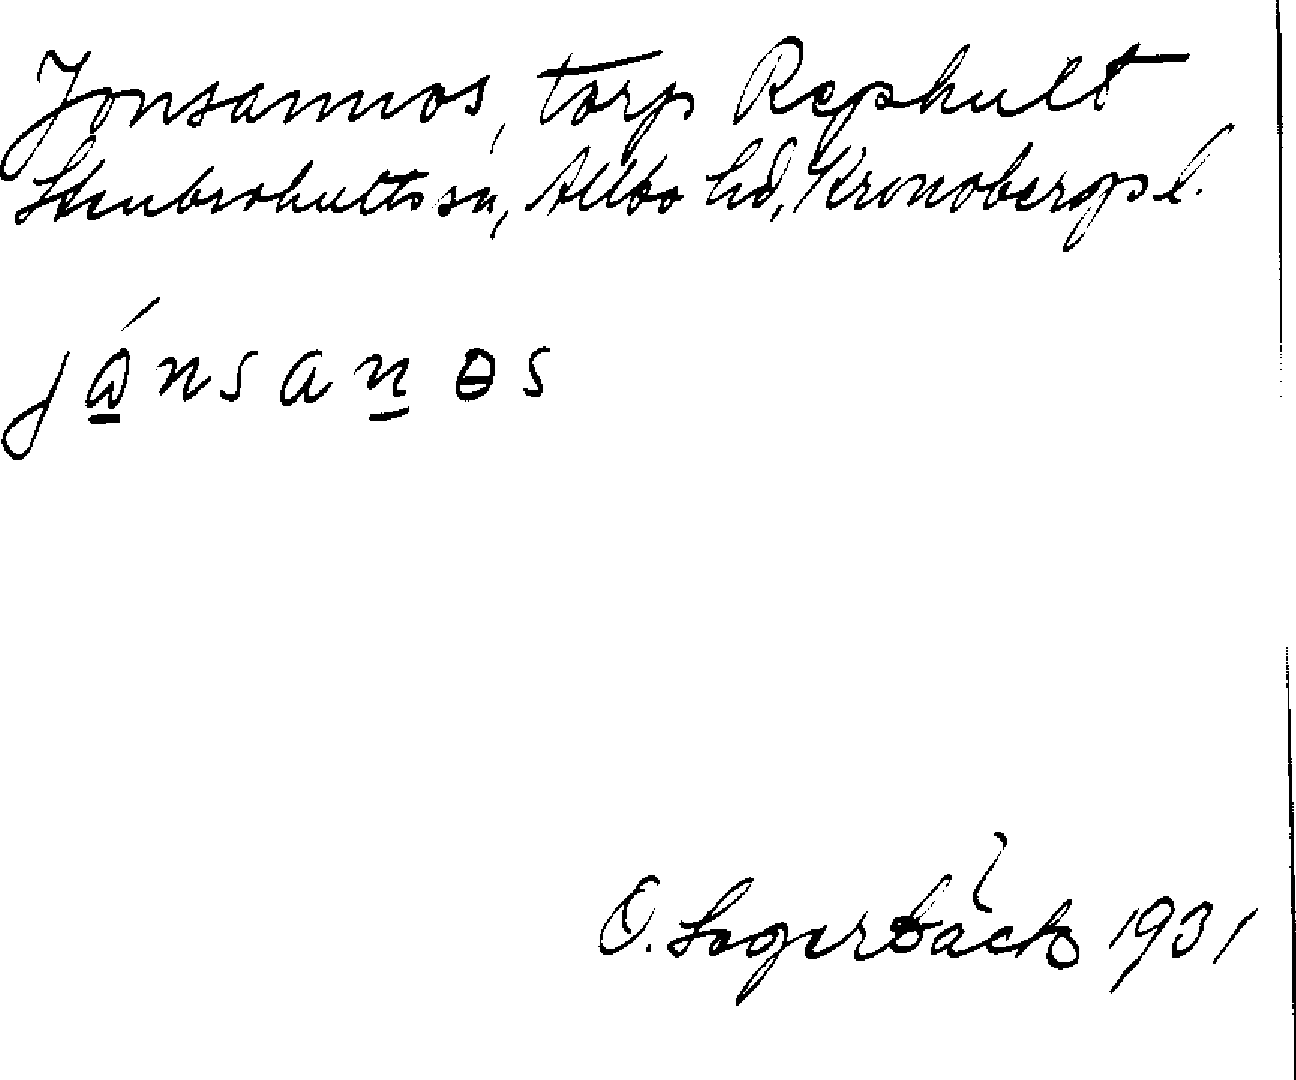 Jonsannos, torp Rephult
Stenbrohults sn, Allbo hd, Kronobergs l.
jánsanɵs
O. Lagerbäck 1931